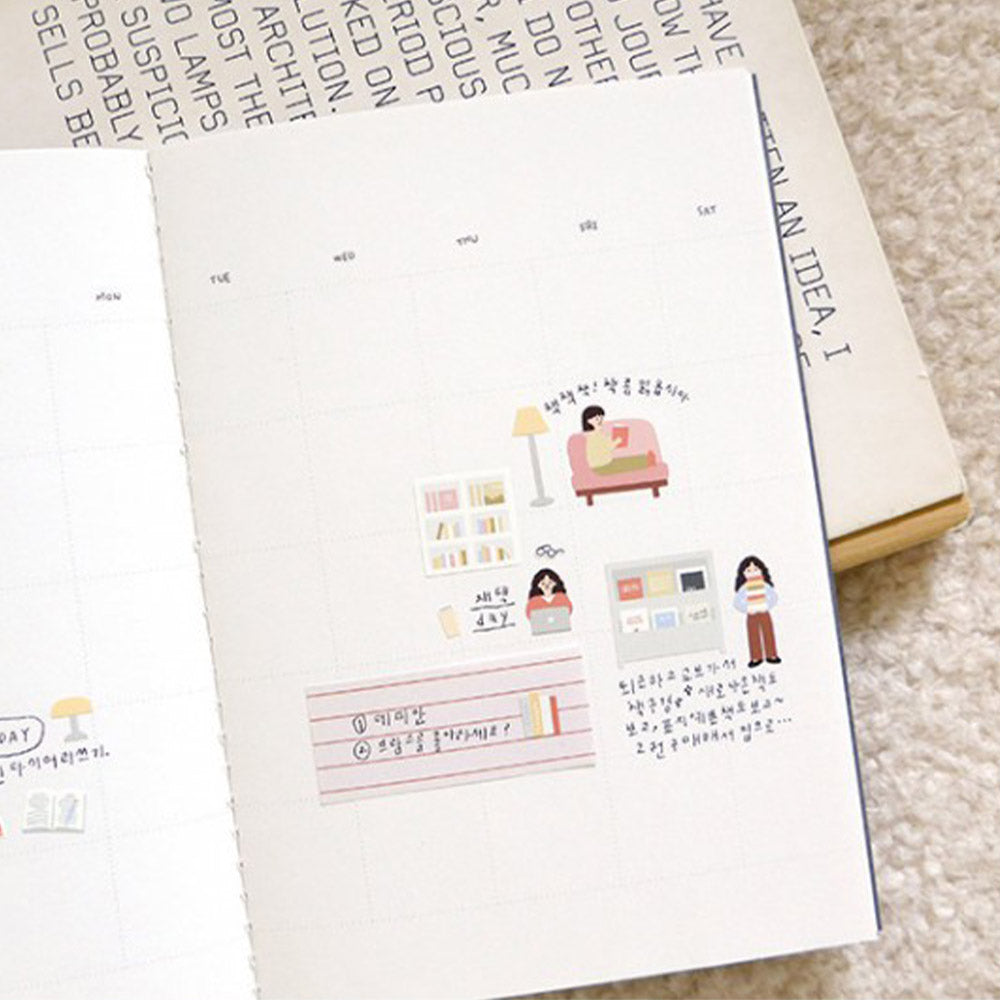 HAVE
OW TH
JOUR
OTHER
I DO N
R, MUC
SCIOUS
ERIOD P
KED ON
LUTION.
ARCHITE
MOST THE
WO LAMPS
SUSPICIO
PROBABLY
SELLS BE
TEN AN IDEA, I
MON
TUE
WED
THU
FRI
SAT
책책책! 책을 읽읍시다
재택
day
① 데미안
② 브람스를 좋아하세요?
퇴근하고 교보가서
책구경 새로나온책도
보고, 표지예쁜책도보고~
고전 구매해서 집으로...
DAY
다이어리쓰기.